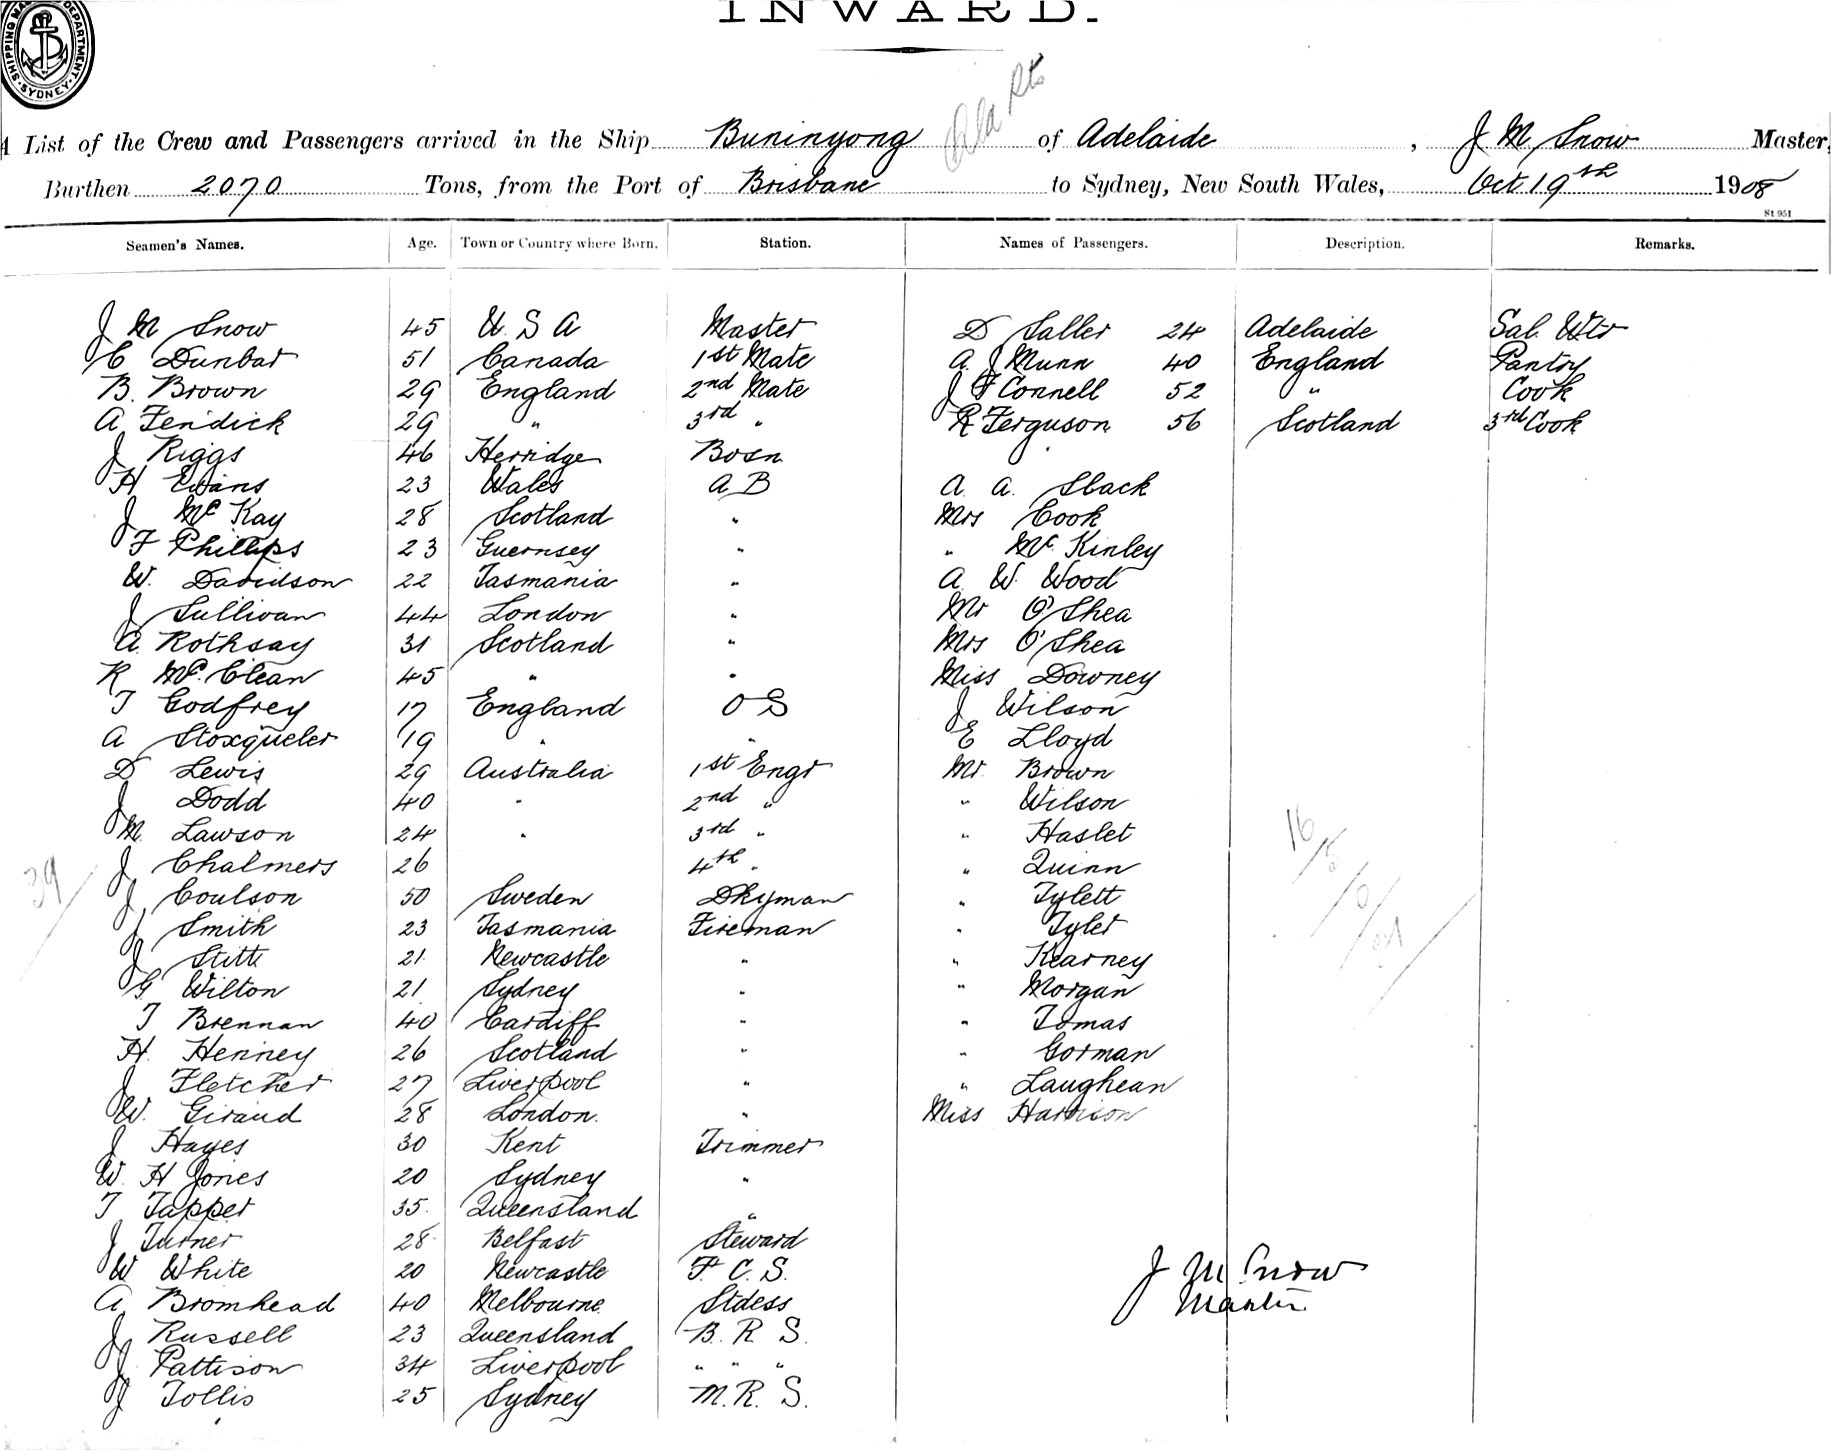 INWARD.
SHIPPING MA DEPARTMENT SYDNEY
A List of the Crew and Passengers arrived in the Ship Buninyong of Adelaide, J M Snow Master,
Burthen 2070 Tons, from the Port of Brisbane to Sydney, New South Wales, Oct 19th 1908
St 951
Seamen's Names. Age. Town or Country where Born. Station. Names of Passengers. Description. Remarks.
J M Snow 45 U.S A Master D Saller 24 Adelaide Sal. Wtr
C Dunbar 51 Canada 1st Mate A. J Munn 40 England Pantry
B. Brown 29 England 2nd Mate J F Connell 52 " Cook
A Fendick 29 " 3rd " R Ferguson 56 Scotland 3rd Cook
J Riggs 46 Herridge Bosn
H Evans 23 Wales A B A. A. Slack
J McKay 28 Scotland " Mrs Cook
F Phillips 23 Guernsey " " McKinley
W. Davidson 22 Tasmania " A W. Wood
J Sullivan 44 London " Mr O'Shea
A. Rothsay 31 Scotland " Mrs O'Shea
R McClean 45 " " Miss Downey
T Godfrey 17 England O S J Wilson
A Stoxqueler 19 " " E Lloyd
D Lewis 29 Australia 1st Engr Mr. Brown
J Dodd 40 " 2nd " " Wilson
M. Lawson 24 " 3rd " " Haslet
J Chalmers 26 4th " " Quinn
J Coulson 50 Sweden Dkyman " Tylett
J Smith 23 Tasmania Fireman " Tyler
J Stitt 21 Newcastle " " Kearney
G Wilton 21 Sydney " " Morgan
T Brennan 40 Cardiff " " Tomas
H. Henney 26 Scotland " " Gorman
J Fletcher 27 Liverpool " " Laughean
W. Giraud 28 London. " Miss Harrison
J Hayes 30 Kent Trimmer
W. H Jones 20 Sydney "
T Tapper 35. Queensland "
J Turner 28 Belfast Steward
W White 20 Newcastle F. C. S.
A Bromhead 40 Melbourne. Stdess
J Russell 23 Queensland B. R S.
J Pattison 34 Liverpool " " "
J Tollis 25 Sydney M. R. S.
39
16
J M Snow
Master